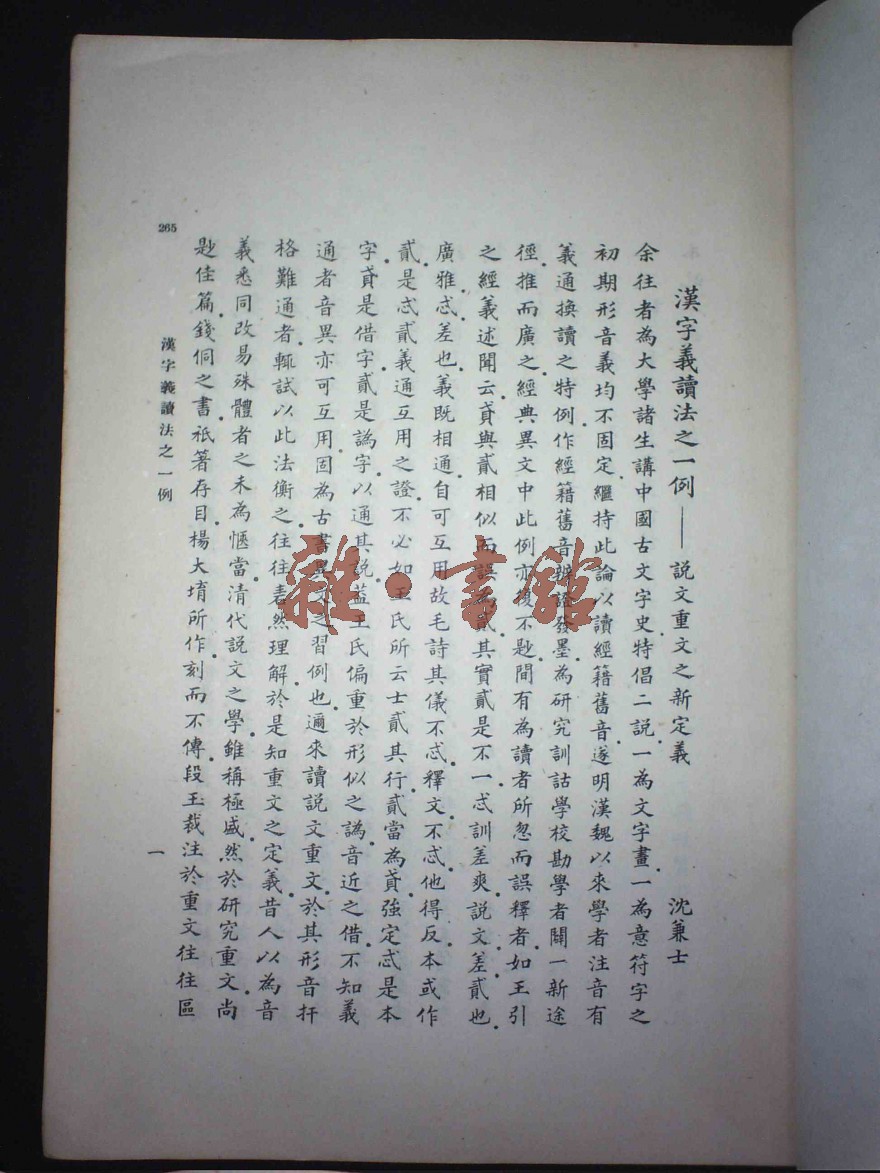 漢字義讀法之一例——説文重文之新定義 沈兼士
余往者為大學諸生講中國古文字史特倡二説一為文字畫一為意符字之
初期形音義均不固定繼持此論以讀經籍舊音遂明漢魏以來學者注音有
義通換讀之特例作經籍舊音辨證發墨為研究訓詁學校勘學者闢一新途
徑推而廣之經典異文中此例亦復不尟間有為讀者所忽而誤釋者如王引
之經義述聞云貣與貳相似而誤為貳其實貳是不一忒訓差爽説文差貳也
廣雅忒差也義既相通自可互用故毛詩其儀不忒釋文不忒他得反本或作
貳是忒貳義通互用之證不必如王氏所云士貳其行貳當為貣強定忒是本
字貣是借字貳是譌字以通其説蓋王氏偏重於形似之譌音近之借不知義
通者音異亦可互用固為古書異文之習例也邇來讀説文重文於其形音扞
格難通者輒試以此法衡之往往砉然理解於是知重文之定義昔人以為音
義悉同改易殊體者之未為愜當清代説文之學雖稱極盛然於研究重文尚
尟佳篇錢侗之書祇著存目楊大堉所作刻而不傳段玉裁注於重文往往區
漢字義讀法之一例
一
265
雜·書館